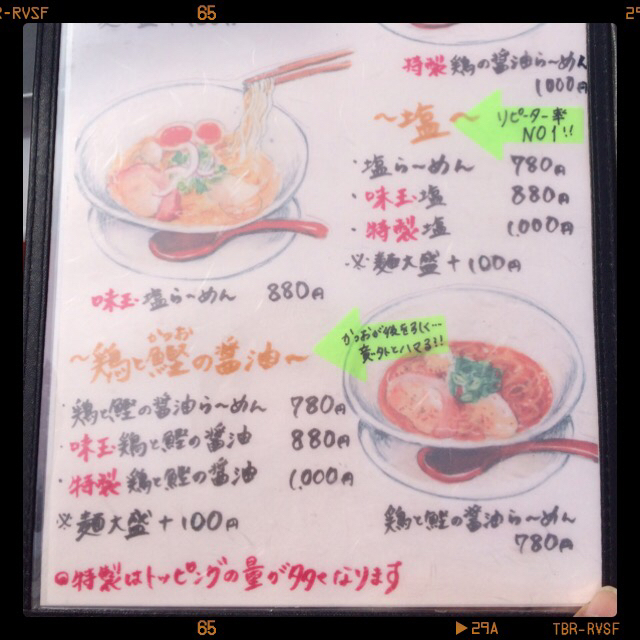 BR-RVSF
65
29
+100円
特製 鶏の醤油ら〜めん
1000円
〜塩〜
リピーター率
NO1!!
・塩ら〜めん 780円
・味玉塩 880円
・特製塩 1,000円
※麺大盛+100円
味玉塩ら〜めん 880円
かつお
〜鶏と鰹の醤油〜
かつおが後を引く…
意外とハマる!!
・鶏と鰹の醤油ら〜めん 780円
・味玉鶏と鰹の醤油 880円
・特製鶏と鰹の醤油 1,000円
※麺大盛+100円
鶏と鰹の醤油ら〜めん
780円
◎特製はトッピングの量が多くなります
65
29A
TBR-RVSF